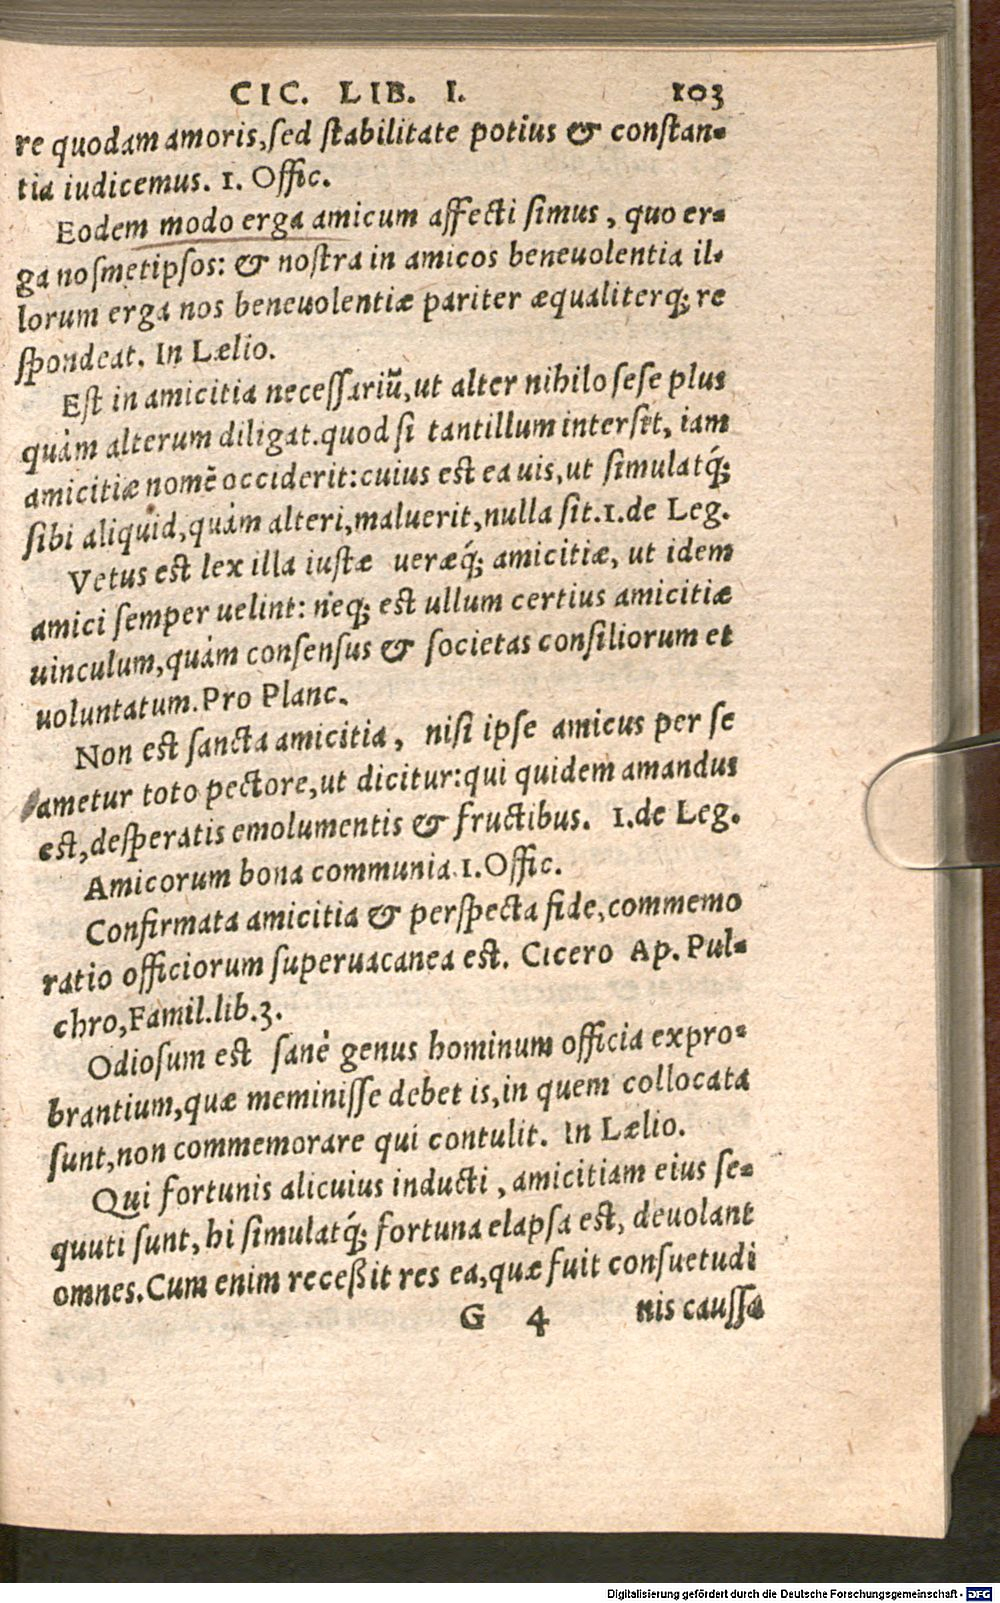 CIC. LIB. I. 103
re quodam amoris, sed stabilitate potius & constan-
tia iudicemus. 1. Offic.
Eodem modo erga amicum affecti simus, quo er-
ga nosmetipsos: & nostra in amicos beneuolentia il-
lorum erga nos beneuolentiæ pariter æqualiterq; re
spondeat. In Lælio.
Est in amicitia necessariũ, ut alter nihilo sese plus
quàm alterum diligat. quod si tantillum intersit, iam
amicitiæ nomẽ occiderit: cuius est ea uis, ut simulatq́;
sibi aliquid, quàm alteri, maluerit, nulla sit. 1. de Leg.
Vetus est lex illa iustæ ueræq́; amicitiæ, ut idem
amici semper uelint: neq; est ullum certius amicitiæ
uinculum, quàm consensus & societas consiliorum et
uoluntatum. Pro Planc.
Non est sancta amicitia, nisi ipse amicus per se
ametur toto pectore, ut dicitur: qui quidem amandus
est, desperatis emolumentis & fructibus. 1. de Leg.
Amicorum bona communia. 1. Offic.
Confirmata amicitia & perspecta fide, commemo
ratio officiorum superuacanea est. Cicero Ap. Pul-
chro, Famil. lib. 3.
Odiosum est sanè genus hominum officia expro-
brantium, quæ meminisse debet is, in quem collocata
sunt, non commemorare qui contulit. In Lælio.
Qui fortunis alicuius inducti, amicitiam eius se-
quuti sunt, hi simulatq́; fortuna elapsa est, deuolant
omnes. Cum enim receßit res ea, quæ fuit consuetudi
G 4 nis caussa
Digitalisierung gefördert durch die Deutsche Forschungsgemeinschaft - DFG